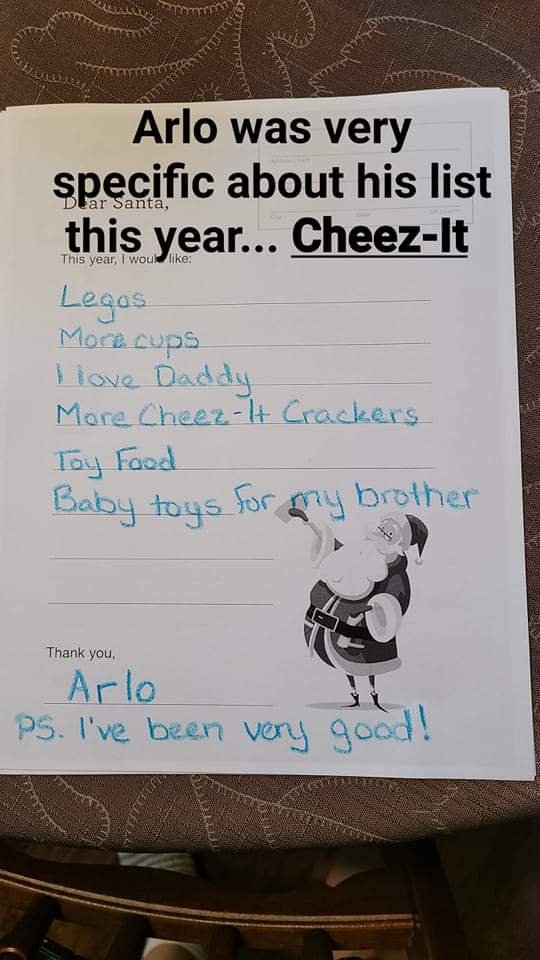 Arlo was very
specific about his list
Dear Santa,
this year... Cheez-It
This year, I would like:
Legos
More cups
I love Daddy
More Cheez-It Crackers
Toy Food
Baby toys for my brother
Thank you,
Arlo
PS. I've been very good!